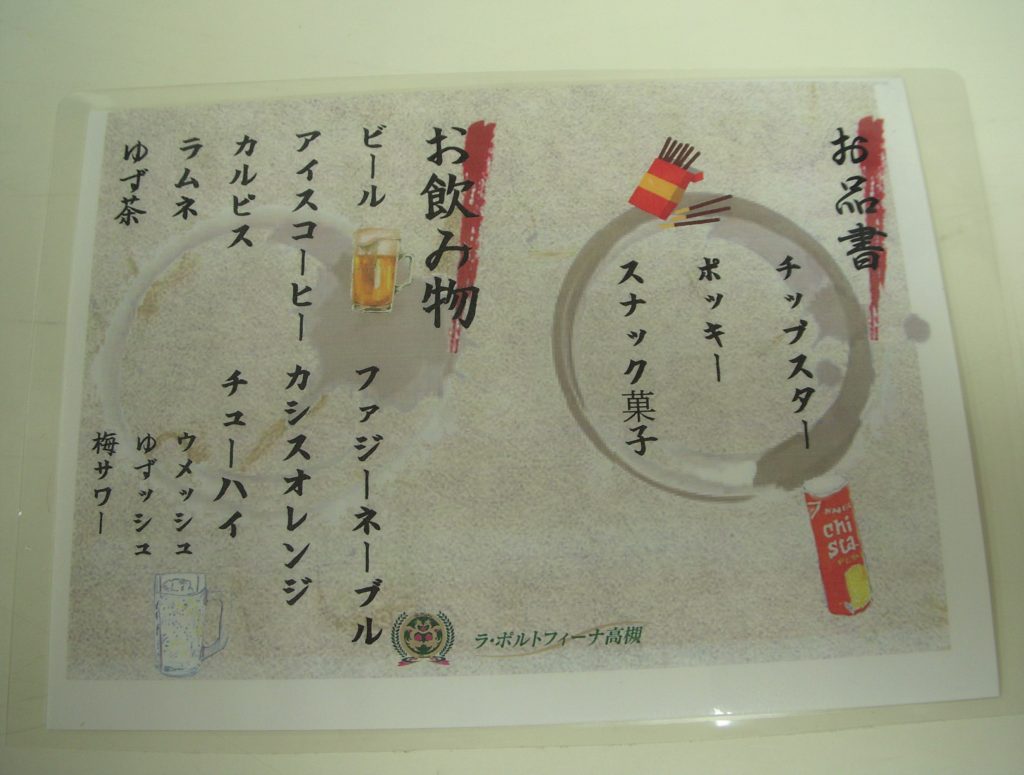 お品書
チップスター
ポッキー
スナック菓子
chi
sta
お飲み物
ビール
アイスコーヒー
カルピス
ラムネ
ゆず茶
ファジーネーブル
カシスオレンジ
チューハイ
ウメッシュ
ゆずッシュ
梅サワー
ラ・ポルトフィーナ高槻